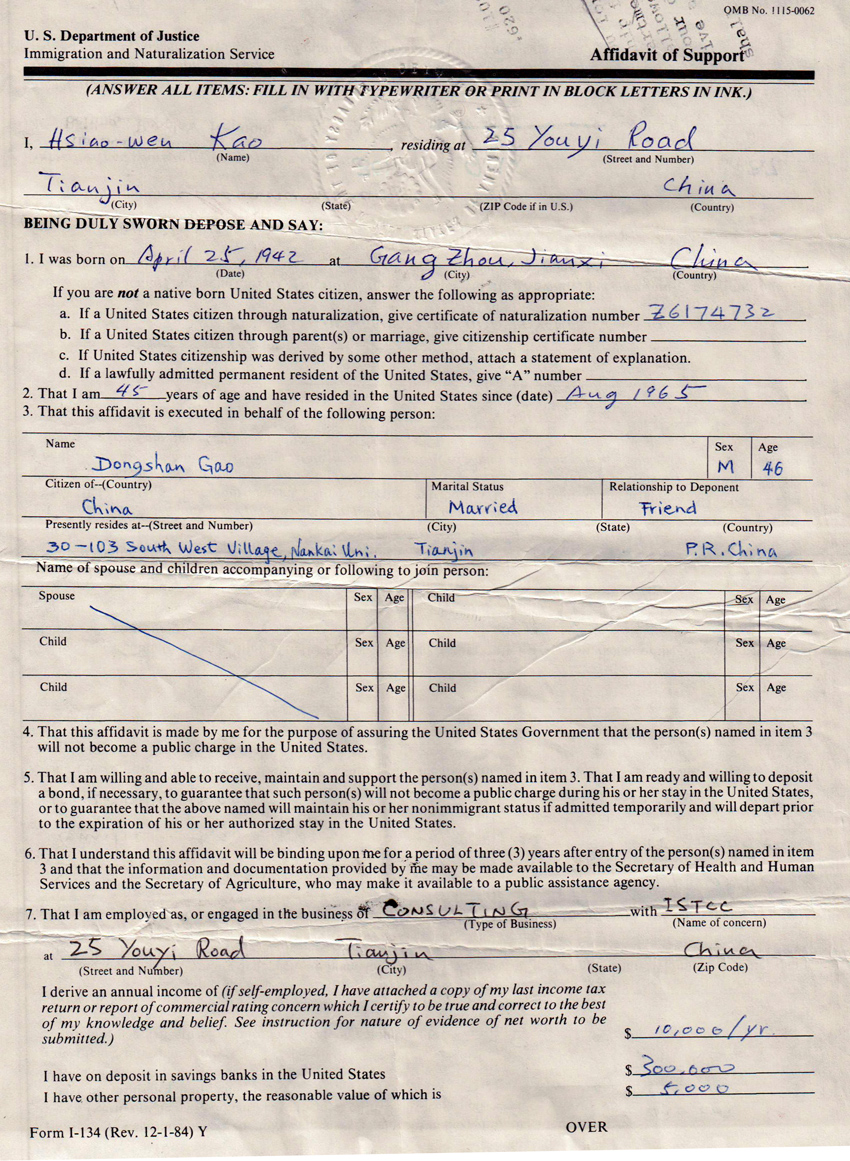 OMB No. 1115-0062
U. S. Department of Justice
Immigration and Naturalization Service
Affidavit of Support
(ANSWER ALL ITEMS: FILL IN WITH TYPEWRITER OR PRINT IN BLOCK LETTERS IN INK.)
I, Hsiao-wen Kao, residing at 25 Youyi Road
(Name) (Street and Number)
Tianjin China
(City) (State) (ZIP Code if in U.S.) (Country)
BEING DULY SWORN DEPOSE AND SAY:
1. I was born on April 25, 1942 at Gang Zhou, Jianxi China
(Date) (City) (Country)
If you are not a native born United States citizen, answer the following as appropriate:
a. If a United States citizen through naturalization, give certificate of naturalization number Z6174732.
b. If a United States citizen through parent(s) or marriage, give citizenship certificate number
c. If United States citizenship was derived by some other method, attach a statement of explanation.
d. If a lawfully admitted permanent resident of the United States, give “A” number
2. That I am 45 years of age and have resided in the United States since (date) Aug 1965
3. That this affidavit is executed in behalf of the following person:
Name Sex Age
Dongshan Gao M 46
Citizen of--(Country) Marital Status Relationship to Deponent
China Married Friend
Presently resides at--(Street and Number) (City) (State) (Country)
30-103 South West Village, Nankai Uni. Tianjin P.R. China
Name of spouse and children accompanying or following to join person:
Spouse Sex Age Child Sex Age
Child Sex Age Child Sex Age
Child Sex Age Child Sex Age
4. That this affidavit is made by me for the purpose of assuring the United States Government that the person(s) named in item 3
will not become a public charge in the United States.
5. That I am willing and able to receive, maintain and support the person(s) named in item 3. That I am ready and willing to deposit
a bond, if necessary, to guarantee that such person(s) will not become a public charge during his or her stay in the United States,
or to guarantee that the above named will maintain his or her nonimmigrant status if admitted temporarily and will depart prior
to the expiration of his or her authorized stay in the United States.
6. That I understand this affidavit will be binding upon me for a period of three (3) years after entry of the person(s) named in item
3 and that the information and documentation provided by me may be made available to the Secretary of Health and Human
Services and the Secretary of Agriculture, who may make it available to a public assistance agency.
7. That I am employed as, or engaged in the business of CONSULTING with ISTCC
(Type of Business) (Name of concern)
at 25 Youyi Road Tianjin China
(Street and Number) (City) (State) (Zip Code)
I derive an annual income of (if self-employed, I have attached a copy of my last income tax
return or report of commercial rating concern which I certify to be true and correct to the best
of my knowledge and belief. See instruction for nature of evidence of net worth to be
submitted.) $ 10,000/yr.
I have on deposit in savings banks in the United States $ 300.000
I have other personal property, the reasonable value of which is $ 5,000
OVER
Form I-134 (Rev. 12-1-84) Y